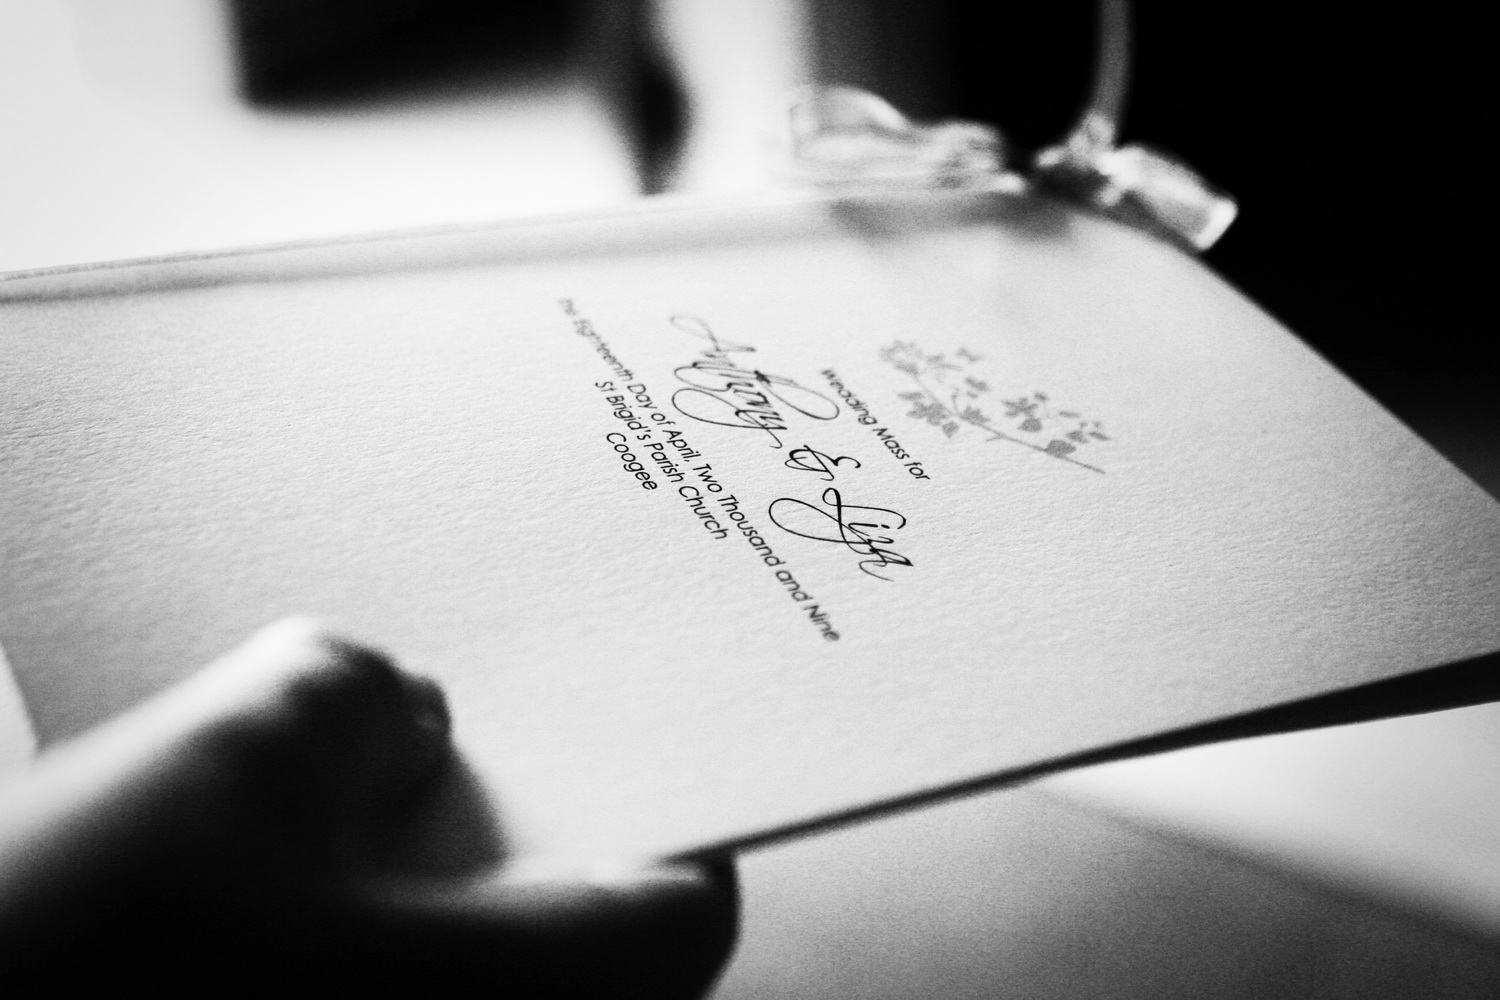 Wedding Mass for
Anthony & Liza
The Eighteenth Day of April, Two Thousand and Nine
St Brigid's Parish Church
Coogee